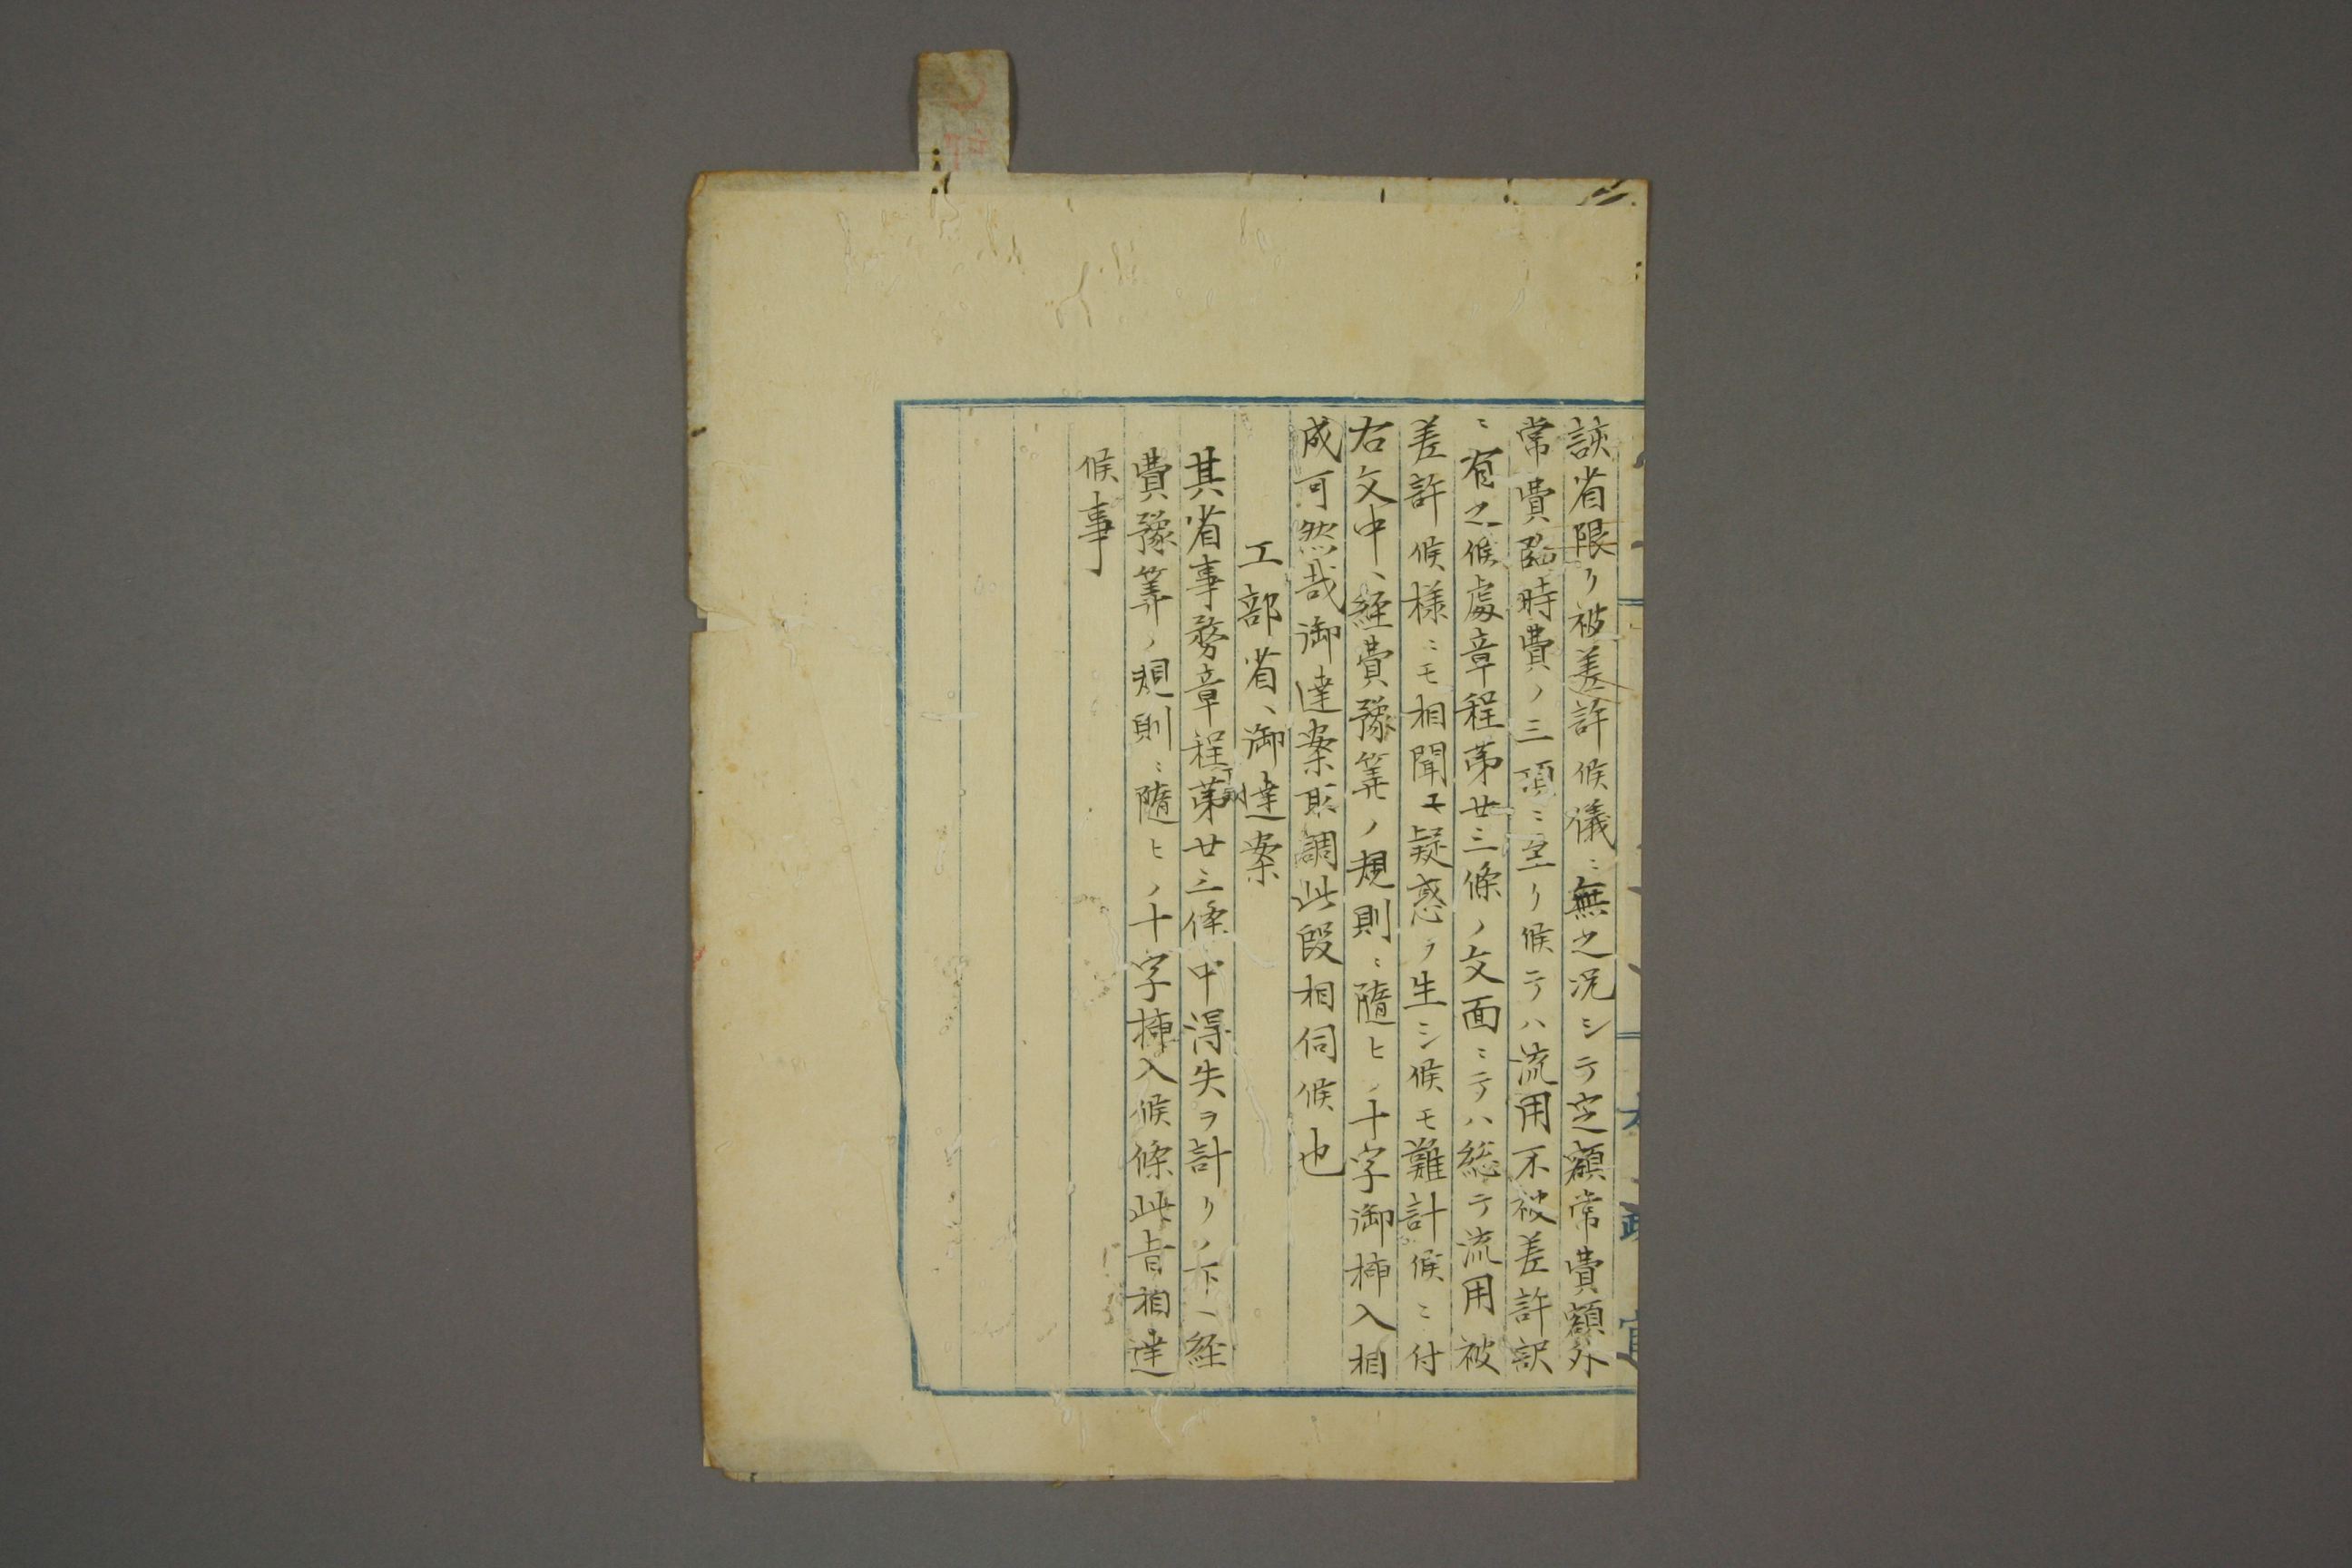 該省限リ被差許候儀ニ無之況シテ定額常費額外
常費臨時費ノ三項ニ至リ候テハ流用不被差許訳
ニ有之候處章程第廿三條ノ文面ニテハ総テ流用被
差許候様ニモ相聞エ疑惑ヲ生シ候モ難計候ニ付
右文中ヘ経費豫筭ノ規則ニ隨ヒノ十字御挿入相
成可然哉御達案取調此段相伺候也
工部省ヘ御達案
其省事務章程第廿三條中得失ヲ計リノ下ヘ経
費豫筭ノ規則ニ隨ヒノ十字挿入候條此旨相達
候事